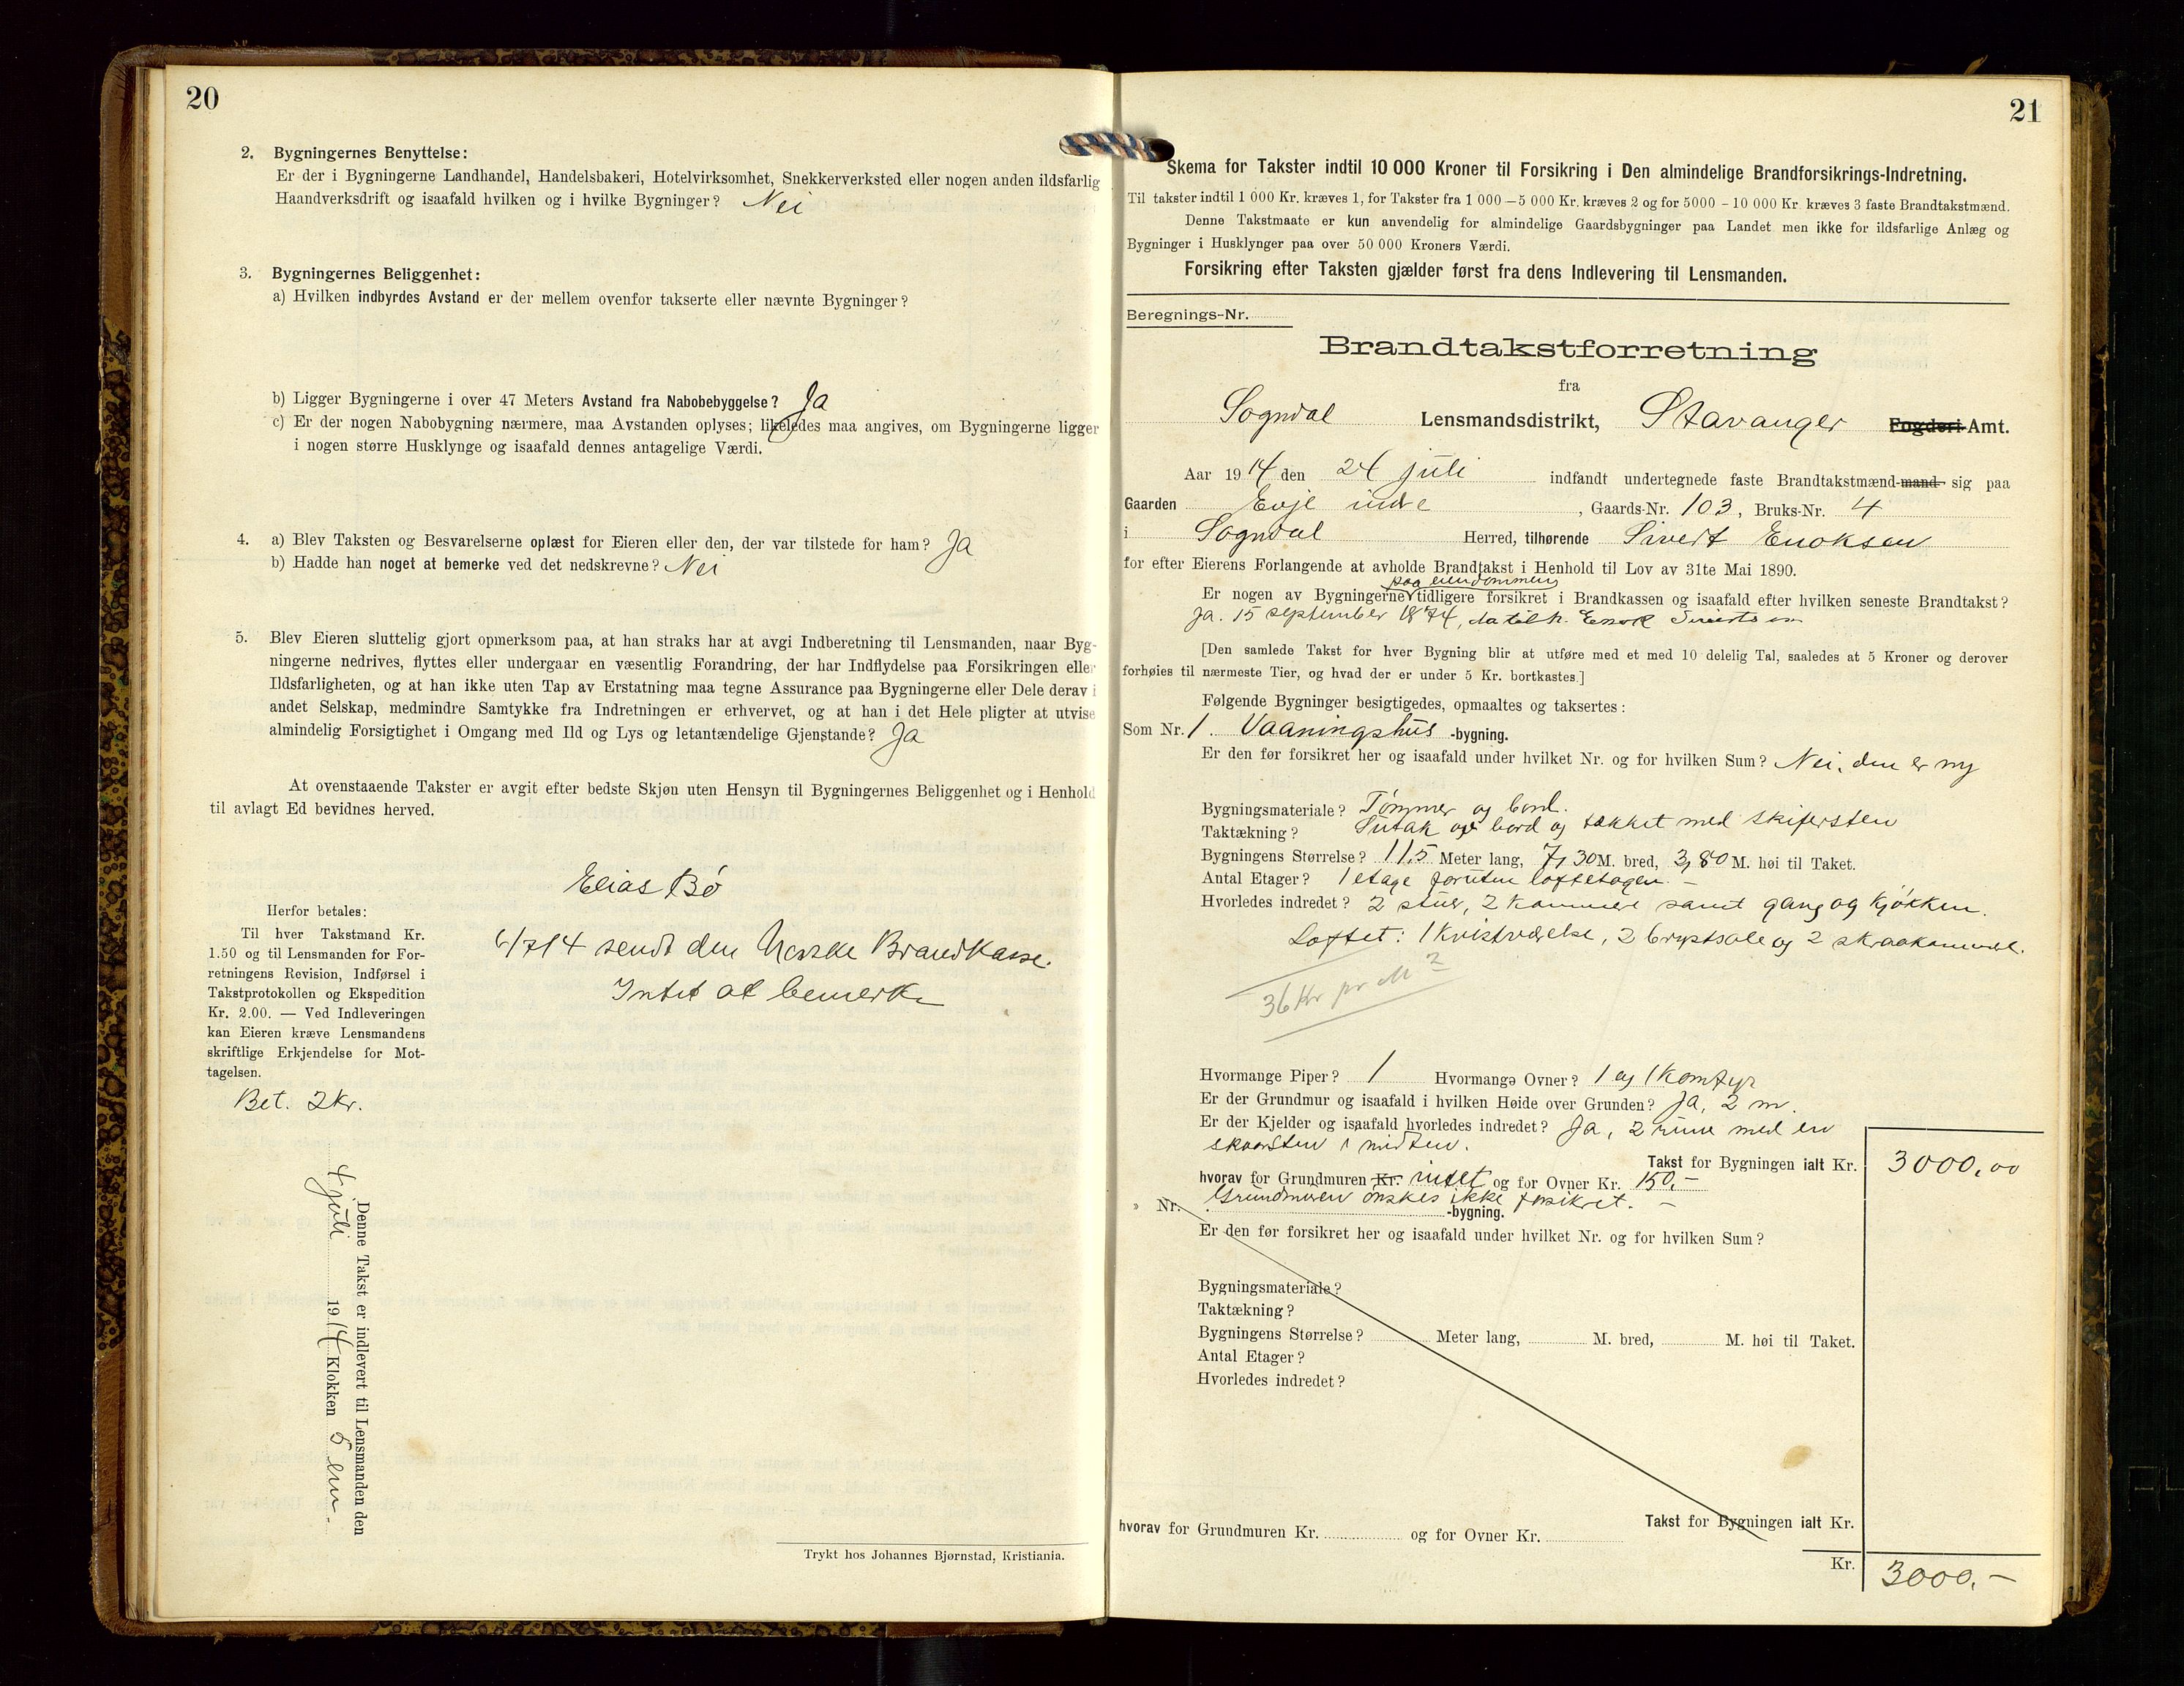 20
2. Bygningernes Benyttelse:
Er der i Bygningerne Landhandel, Handelsbakeri, Hotelvirksomhet, Snekkerverksted eller nogen anden ildsfarlig
Haandverksdrift og isaafald hvilken og i hvilke Bygninger? Nei
3. Bygningernes Beliggenhet:
a) Hvilken indbyrdes Avstand er der mellem ovenfor takserte eller nævnte Bygninger?
b) Ligger Bygningerne i over 47 Meters Avstand fra Nabobebyggelse? Ja
c) Er der nogen Nabobygning nærmere, maa Avstanden oplyses; likeledes maa angives, om Bygningerne ligger
i nogen større Husklynge og isaafald dennes antagelige Værdi.
4. a) Blev Taksten og Besvarelserne oplæst for Eieren eller den, der var tilstede for ham? Ja
b) Hadde han noget at bemerke ved det nedskrevne? Nei
5. Blev Eieren sluttelig gjort opmerksom paa, at han straks har at avgi Indberetning til Lensmanden, naar Byg-
ningerne nedrives, flyttes eller undergaar en væsentlig Forandring, der har Indflydelse paa Forsikringen eller
Ildsfarligheten, og at han ikke uten Tap av Erstatning maa tegne Assurance paa Bygningerne eller Dele derav i
andet Selskap, medmindre Samtykke fra Indretningen er erhvervet, og at han i det Hele pligter at utvise
almindelig Forsigtighet i Omgang med Ild og Lys og letantændelige Gjenstande? Ja
At ovenstaaende Takster er avgit efter bedste Skjøn uten Hensyn til Bygningernes Beliggenhet og i Henhold
til avlagt Ed bevidnes herved.
Elias Bø
6/714 sendt den Norske Brandkasse.
Intet at bemerke
Herfor betales:
Til hver Takstmand Kr.
1.50 og til Lensmanden for For-
retningens Revision, Indførsel i
Takstprotokollen og Ekspedition
Kr. 2.00. — Ved Indleveringen
kan Eieren kræve Lensmandens
skriftlige Erkjendelse for Mot-
tagelsen.
Bet. 2 kr.
Denne Takst er indlevert til Lensmanden den
4 juli 1914 Klokken 5 em.
Trykt hos Johannes Bjørnstad, Kristiania.
21
Skema for Takster indtil 10 000 Kroner til Forsikring i Den almindelige Brandforsikrings-Indretning.
Til takster indtil 1 000 Kr. kræves 1, for Takster fra 1 000 – 5 000 Kr. kræves 2 og for 5000 – 10 000 Kr. kræves 3 faste Brandtakstmænd.
Denne Takstmaate er kun anvendelig for almindelige Gaardsbygninger paa Landet men ikke for ildsfarlige Anlæg og
Bygninger i Husklynger paa over 50 000 Kroners Værdi.
Forsikring efter Taksten gjælder først fra dens Indlevering til Lensmanden.
Beregnings-Nr.
Brandtakstforretning
fra
Sogndal Lensmandsdistrikt, Stavanger Fogderi Amt.
Aar 1914 den 24 juli indfandt undertegnede faste Brandtakstmænd-mand sig paa
Gaarden Evje indre, Gaards-Nr. 103, Bruks-Nr. 4
i Sogndal Herred, tilhørende Sivert Enoksen
for efter Eierens Forlangende at avholde Brandtakst i Henhold til Lov av 31te Mai 1890.
paa eiendommen
Er nogen av Bygningerne tidligere forsikret i Brandkassen og isaafald efter hvilken seneste Brandtakst?
Ja. 15 september 1874, da tilh. Enok Sivertsen
[Den samlede Takst for hver Bygning blir at utføre med et med 10 delelig Tal, saaledes at 5 Kroner og derover
forhøies til nærmeste Tier, og hvad der er under 5 Kr. bortkastes.]
Følgende Bygninger besigtigedes, opmaaltes og taksertes:
Som Nr. 1. Vaaningshus -bygning.
Er den før forsikret her og isaafald under hvilket Nr. og for hvilken Sum? Nei, den er ny
Bygningsmateriale? Tømmer og bord.
Taktækning? Sutak og bord og tækket med skifersten
Bygningens Størrelse? 11,5 Meter lang, 7,30 M. bred, 3,80 M. høi til Taket.
Antal Etager? 1 etage foruten loftetagen. –
Hvorledes indredet? 2 stuer, 2 kammere samt gang og kjøkken.
Loftet: 1 kvistværelse, 2 og 2 skraakammer.
36 Kr pr M 2
Hvormange Piper? 1 Hvormange Ovner? 1 og 1 komfyr
Er der Grundmur og isaafald i hvilken Høide over Grunden? Ja, 2 m.
Er der Kjelder og isaafald hvorledes indredet? Ja, 2 rum med en
skorsten i midten.
Takst for Bygningen ialt Kr. 3000,00
hvorav for Grundmuren Kr. intet og for Ovner Kr. 150,–
Grundmuren ønskes ikke forsikret. –
» Nr. -bygning.
Er den før forsikret her og isaafald under hvilket Nr. og for hvilken Sum?
Bygningsmateriale?
Taktækning?
Bygningens Størrelse? Meter lang, M. bred, M. høi til Taket.
Antal Etager?
Hvorledes indredet?
Takst for Bygningen ialt Kr.
hvorav for Grundmuren Kr. og for Ovner Kr.
Kr. 3000,–